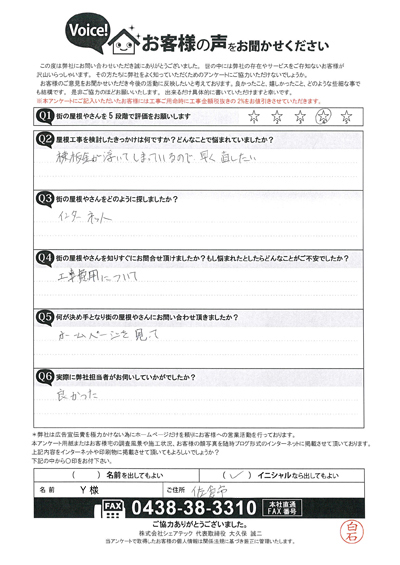 Voice!
お客様の声をお聞かせください
この度は弊社にお問い合わせいただき誠にありがとうございました。世の中には弊社の存在やサービスをご存知ないお客様が
沢山いらっしゃいます。その方たちに弊社をよく知っていただくためのアンケートにご協力いただけないでしょうか。
お客様のご意見をお聞かせいただき今後の活動に反映したいと考えております。良かったこと、嬉しかったこと、どのような些細な事で
も結構です。是非ご協力のほどお願いいたします。出来るだけ具体的に書いていただけますと幸いです。
※本アンケートにご記入いただいたお客様には工事ご用命時に工事金額税抜きの2%をお値引きさせていただきます。
Q1 街の屋根やさんを5段階で評価をお願いします
Q2 屋根工事を検討したきっかけは何ですか?どんなことで悩まれていましたか?
棟板金が浮いてしまっているので早く直したい
Q3 街の屋根やさんをどのように探しましたか?
インターネット
Q4 街の屋根やさんを知りすぐにお問合せ頂けましたか?もし悩まれたとしたらどんなことがご不安でしたか?
工事費用について
Q5 何が決め手となり街の屋根やさんにお問い合わせ頂きましたか?
ホームページを見て
Q6 実際に弊社担当者がお伺いしていかがでしたか?
良かった
※弊社は広告宣伝費を極力かけない為にホームページだけを頼りにお客様への営業活動を行っております。
本アンケート用紙またはお客様宅の調査風景や施工状況、お客様の顔写真を随時ブログ形式のインターネットに掲載させて頂いております。
上記内容をインターネットや印刷物に掲載させて頂いてもよろしいでしょうか?
下記の中から〇印をお付け下さい。
( ) 名前を出してもよい ( ✓ ) イニシャルなら出してもよい
名前 Y 様 ご住所 佐倉市
FAX 0438-38-3310 本社直通 FAX番号
ご協力ありがとうございました。
株式会社シェアテック 代表取締役 大久保 誠二
当アンケートで取得したお客様の個人情報は関係法規に基づき厳正に管理いたします。
白石